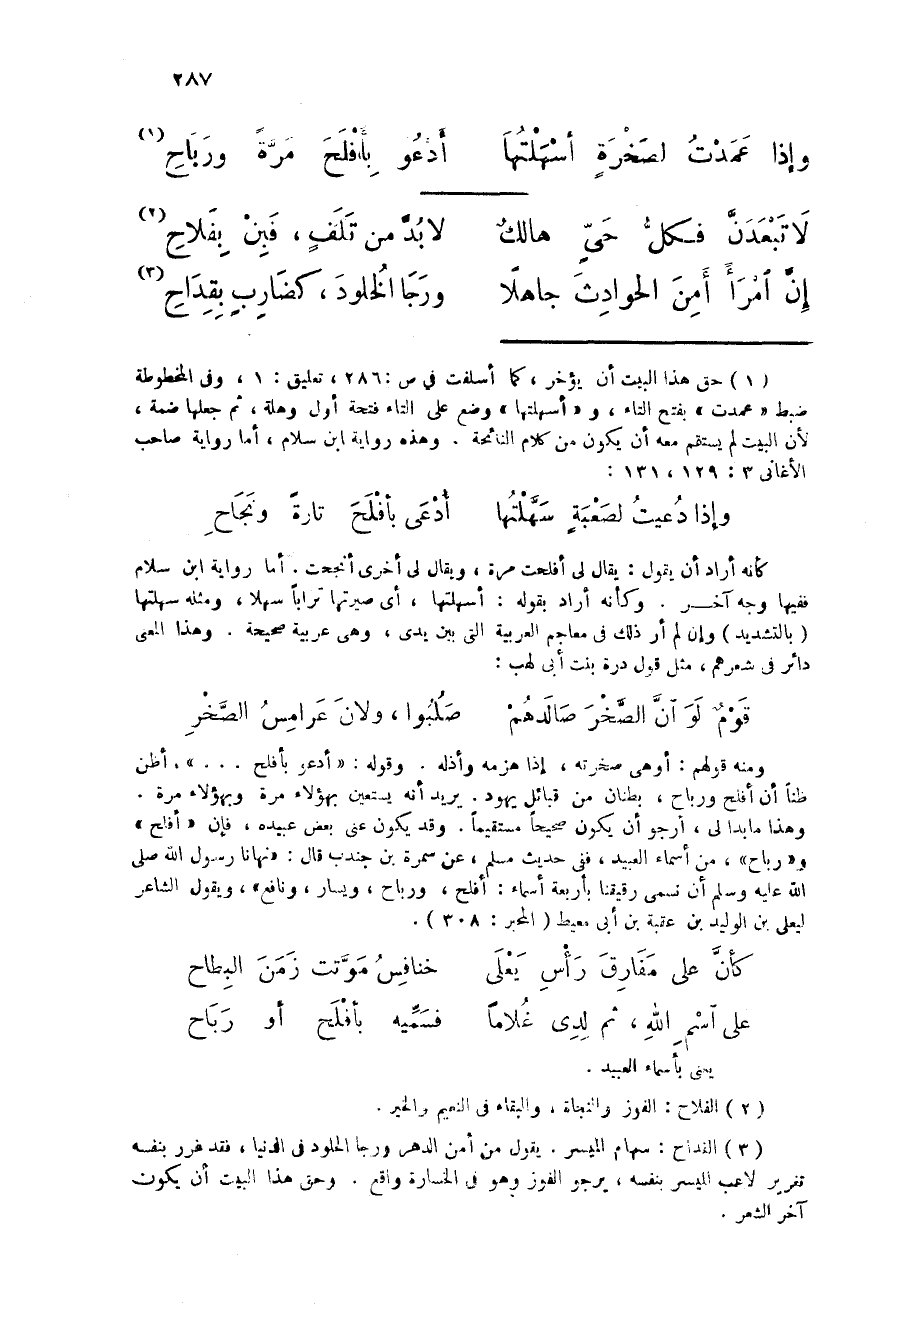 ٢٨٧
وإذا عَمَدْتُ لصَخْرَةٍ أسْهَلْتُهَا أَدْعُو بِأَفْلَحَ مَرَّةً ورَبَاحِ (١)
لَا تَبْعَدَنَّ فكلُّ حَيٍّ هالكٌ لا بُدَّ من تَلَفٍ ، فَبِنْ بِفَلاحِ (٢)
إِنَّ ٱمْرَأً أَمِنَ الحوادِثَ جاهلًا ورَجَا الخُلودَ ، كضَارِبٍ بِقِدَاحِ (٣)
( ١ ) حق هذا البيت أن يؤخر ، كما أسلفت في ص : ٢٨٦ ، تعليق : ١ ، وفى المخطوطة
ضبط « عمدت » بفتح التاء ، و « أسهلتها » وضع على التاء فتحة أول وهلة ، ثم جعلها ضمة ،
لأن البيت لم يستقم معه أن يكون من كلام النائحة . وهذه رواية ابن سلام ، أما رواية صاحب
الأغانى ٣ : ١٢٩ ، ١٣١ :
وإذا دُعيتُ لصَعْبَةٍ سَهَّلْتُها أُدْعَى بأفْلَحَ تارةً ونَجَاحِ
كأنه أراد أن يقول : يقال لى أفلحت مرة ، ويقال لى أخرى أنجحت . أما رواية ابن سلام
ففيها وجه آخـــر . وكأنه أراد بقوله : أسهلتها ، أى صيرتها تراباً سهلا ، ومثله سهلتها
( بالتشديد ) وإن لم أر ذلك فى معاجم العربية التى بين يدى ، وهى عربية صحيحة . وهذا المعنى
دائر فى شعرهم ، مثل قول درة بنت أبى لهب :
قَوْمٌ لَوَ آنَّ الصَّخْرَ صَالَدهُمْ صَلُبُوا ، ولانَ عَرامِسُ الصَّخْرِ
ومنه قولهم : أوهى صخرته ، إذا هزمه وأذله . وقوله : « أدعو بأفلح . . . » ، أظن
ظناً أن أفلح ورباح ، بطنان من قبائل يهود . يريد أنه يستعين بهؤلاء مرة وبهؤلاء مرة .
وهذا ما بدا لى ، أرجو أن يكون صحيحاً مستقيماً . وقد يكون عنى بعض عبيده ، فإن « أفلح »
و « رباح » ، من أسماء العبيد ، ففى حديث مسلم ، عن سمرة بن جندب قال : « نهانا رسول الله صلى
الله عليه وسلم أن نسمى رقيقنا بأربعة أسماء : أفلح ، ورباح ، ويسار ، ونافع » ، ويقول الشاعر
ليعلى بن الوليد بن عقبة بن أبى معيط ( المحبر : ٣٠٨ ) .
كأنَّ على مَفَارِقَ رَأْسِ يَعْلَى خنافِسُ مَوَّتت زَمَنَ البِطاح
على ٱسْمِ اللهِ ، ثم لِدِى غُلاماً فسَمِّيه بأفْلَح أو رَبَاح
يعنى بأسماء العبيد .
( ٢ ) الفلاح : الفوز والنجاة ، والبقاء فى النعيم والخير .
( ٣ ) القداح : سهام الميسر . يقول من أمن الدهر ورجا الخلود فى الدنيا ، فقد غرر بنفسه
تغرير لاعب الميسر بنفسه ، يرجو الفوز وهو فى الخسارة واقع . وحق هذا البيت أن يكون
آخر الشعر .